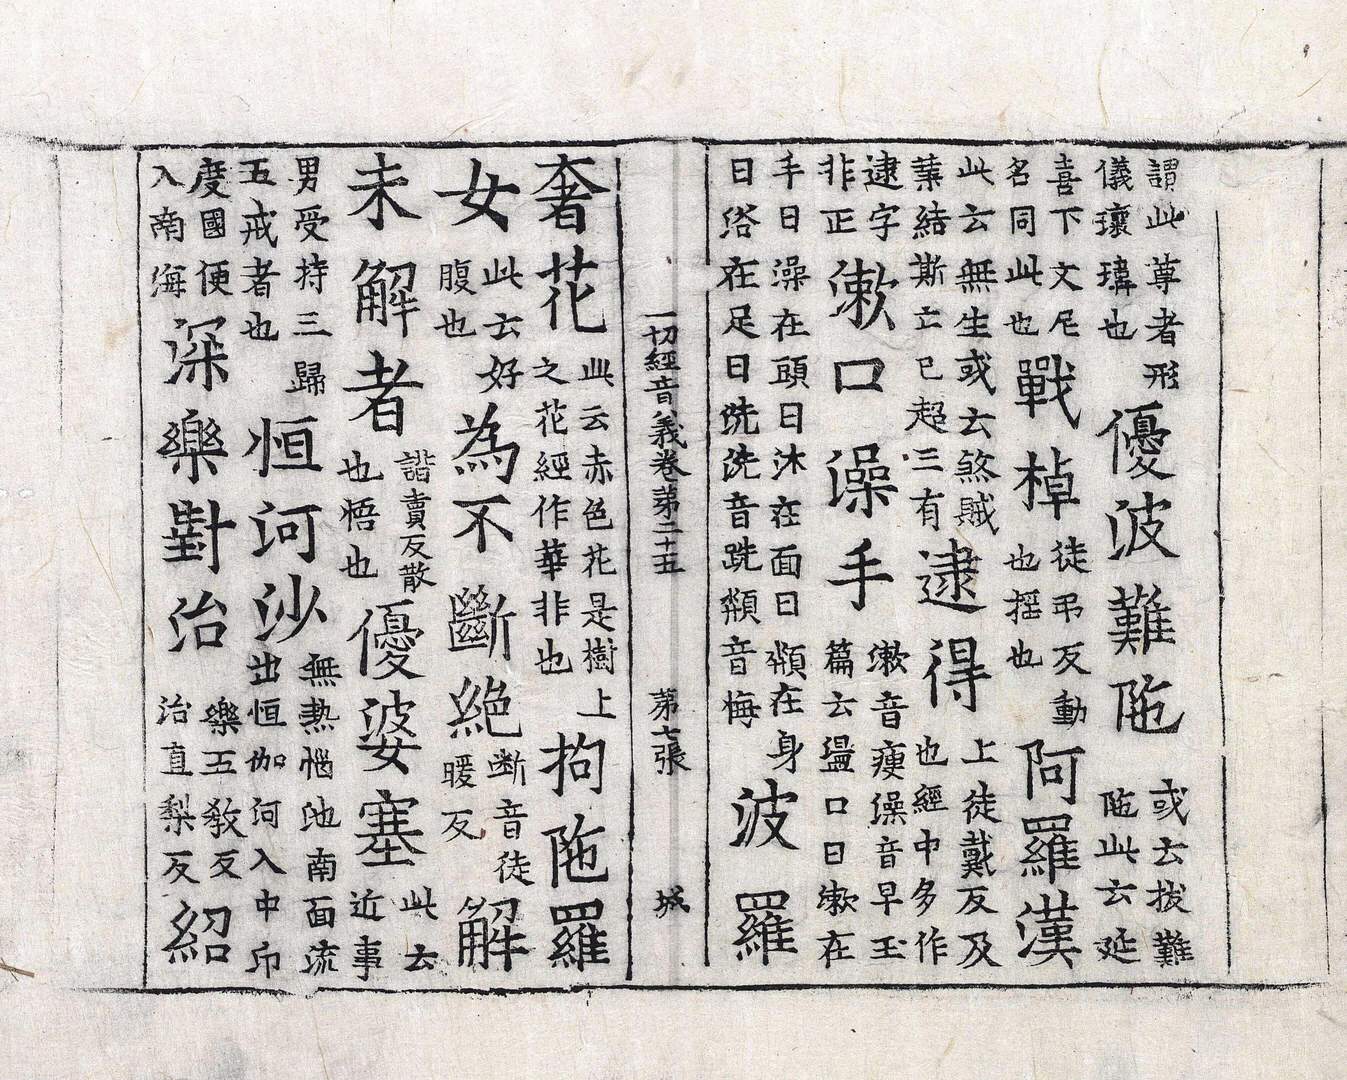 謂此尊者形儀瓌瑋也優波難陁或云拔難陁此云延
喜下文尼名同此也戰棹徒弔反動也搖也阿羅漢
此云無生或云煞賊葉結斯亡已超三有逮得上徒戴反及也經中多作
逮字非正漱口澡手漱音瘦澡音早玉篇云盪口曰漱在
手曰澡在頭曰沐在面曰頮在身曰浴在足曰洗洗音跣頮音悔波羅
一切經音義卷第二十五 第七張 城
奢花此云赤色花是樹上之花經作華非也拘陁羅
女此云好腹也為不斷絕斷音徒暖反解
未解者諧賣反散也悟也優婆塞此云近事
男受持三歸五戒者也恒河沙無熱惱池南面流出恒伽河入中印
度國便入南海深樂對治樂五教反治直梨反紹